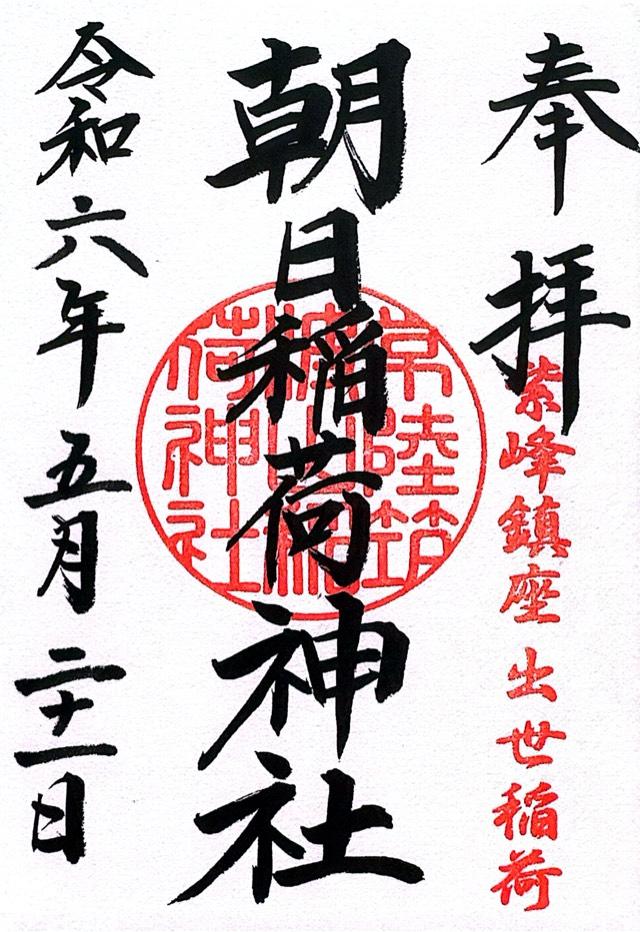 奉拝
紫峰鎮座 出世稲荷
朝日稲荷神社
常陸筑
波山稲
荷神社
令和六年五月二十一日